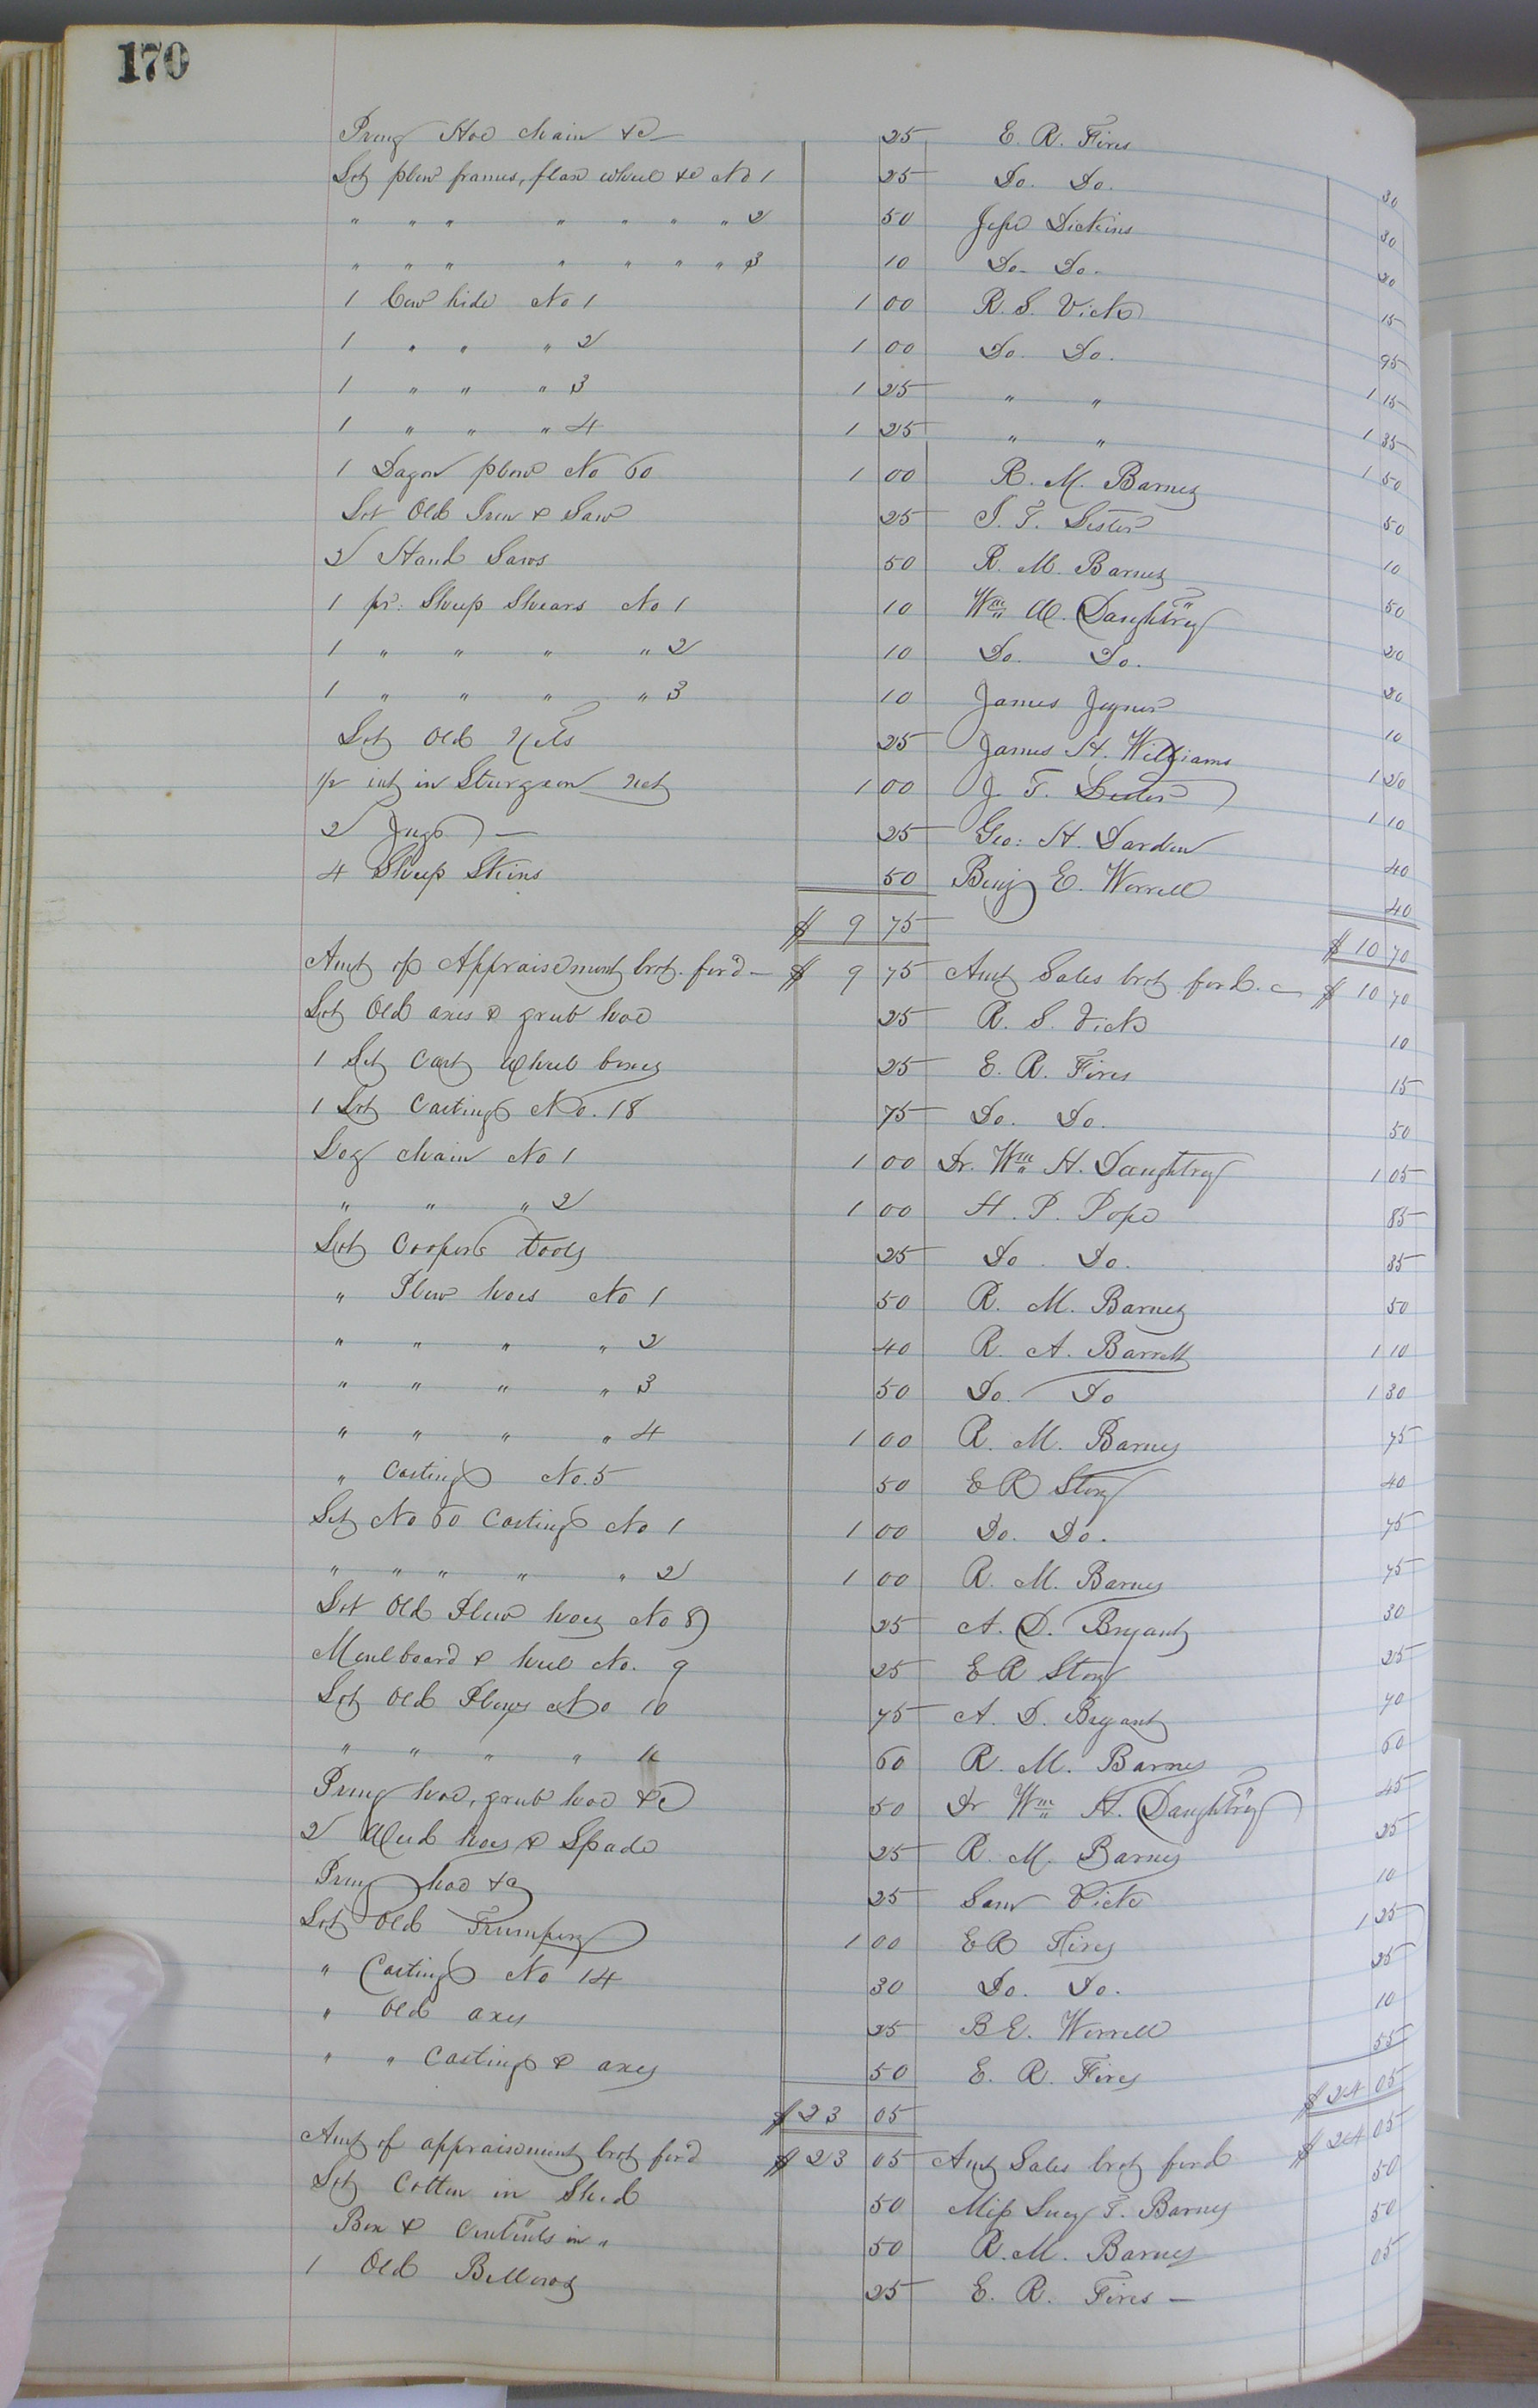 170
Prong Hoe chain &c 25 E. R. Fires 30
Lot plow frames, flax wheel &c No 1 25 Do. Do. 30
" " " " " " " 2 50 Jesse Dickins 20
" " " " " " " 3 10 Do. Do. 15
1 Cow hide No 1 1 00 R. S. Vick 95
1 " " " 2 1 00 Do. Do. 1 15
1 " " " 3 1 25 " " 1 35
1 " " " 4 1 25 " " 1 50
1 Dagon plow No 60 1 00 R. M. Barnes 50
Lot Old Iron & Saw 25 J. T. Lester 10
2 Hand Saws 50 R. M. Barnes 50
1 pr: Sheep Shears No 1 10 Wm H. Daughtrey 20
1 " " " " 2 10 Do. Do. 20
1 " " " " 3 10 James Joyner 10
Lot Old Nets 25 James H. Williams 1 20
1/2 int in Sturgeon Net 1 00 J. T. Lester 1 10
2 Jugs 25 Geo: H. Darden 40
4 Sheep Skins 50 Benj E. Worrell 40
$ 9 75 $ 10 70
Amt of Appraisement brot. for'd $ 9 75 Amt Sales brot ford. $ 10 70
Lot Old axes & grub hoe 25 R. S. Vick 10
1 Set Cart Wheel boxes 25 E. R. Fires 15
1 Lot Castings No. 18 75 Do. Do. 50
Log chain No 1 1 00 Dr. Wm H. Daughtrey 1 05
" " " 2 1 00 H. P. Pope 85
Lot Coopers tools 25 Do. Do. 35
" Plow hoes No 1 50 R. M. Barnes 50
" " " " 2 40 R. A. Barrett 1 10
" " " " 3 50 Do. Do 1 30
" " " " 4 1 00 R. M. Barnes 75
" Castings No. 5 50 E R Story 40
Set No 60 Castings No 1 1 00 Do. Do. 75
" " " " " 2 1 00 R. M. Barnes 75
Lot Old Plow hoes No 8 25 A. D. Bryant 30
Moulboard & heel No. 9 25 E R Story 25
Lot Old Plows No 10 75 A. D. Bryant 70
" " " " 11 60 R. M. Barnes 60
Prong hoe, grub hoe &c 50 Dr Wm H. Daughtrey 45
2 Weed hoes & Spade 25 R. M. Barnes 25
Prong hoe &c 25 Saml Vick 10
Lot Old Trumpery 1 00 E R Fires 1 25
" Castings No 14 30 Do. Do. 25
" Old axes 25 B E. Worrell 10
" " Castings & axes 50 E. R. Fires 55
$ 23 05 $ 24 05
Amt of appraisement brot for'd $ 23 05 Amt Sales brot ford $ 24 05
Lot Cotton in Shed 50 Miss Lucy T. Barnes 50
Box & Contents in " 50 R. M. Barnes 50
1 Old Bellows 25 E. R. Fires 05